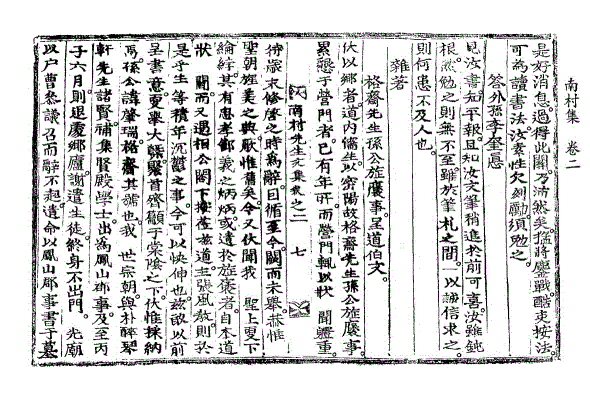 南村集 卷二
是好消息過得此關乃沛然矣猛將鏖戰酷吏按法
可爲讀書法汝素性欠刻勵須勉之
答外孫李奎應
見汝書知平報且知汝文筆稍進於前可喜汝雖鈍
根然勉之則無不至雖於筆札之間一以誠信求之
則何患不及人也
雜著
格齋先生孫公旌褒事呈道伯文
伏以鄉者道內儒生以密陽故格齋先生孫公旌褒事
累懇于營門者已有年所而營門輒以狀聞體重
待歲末修啓之時爲辭因循至今闕而未擧恭惟
南村先生文集卷之二 七
聖朝旌美之典厥惟舊矣今又伏聞我 聖上更下
綸綍其有忠孝節義之炳炳或遺於旌褒者自本道
狀 聞而又遇相公閤下按莅玆道主張風敎則於
是乎生等積年沉鬱之事今可以快伸也玆敢以前
呈書意更擧大槩齊首齊顧于棠陰之下伏惟採納
焉孫公諱肇瑞格齋其號也我 世宗朝與朴醉琴
軒先生諸賢補集賢殿學士出爲鳳山郡事及至丙
子六月則退處鄉廬謝遣生徒終身不出門 光廟
以戶曹參議召而辭不起遺命以鳳山郡事書于墓